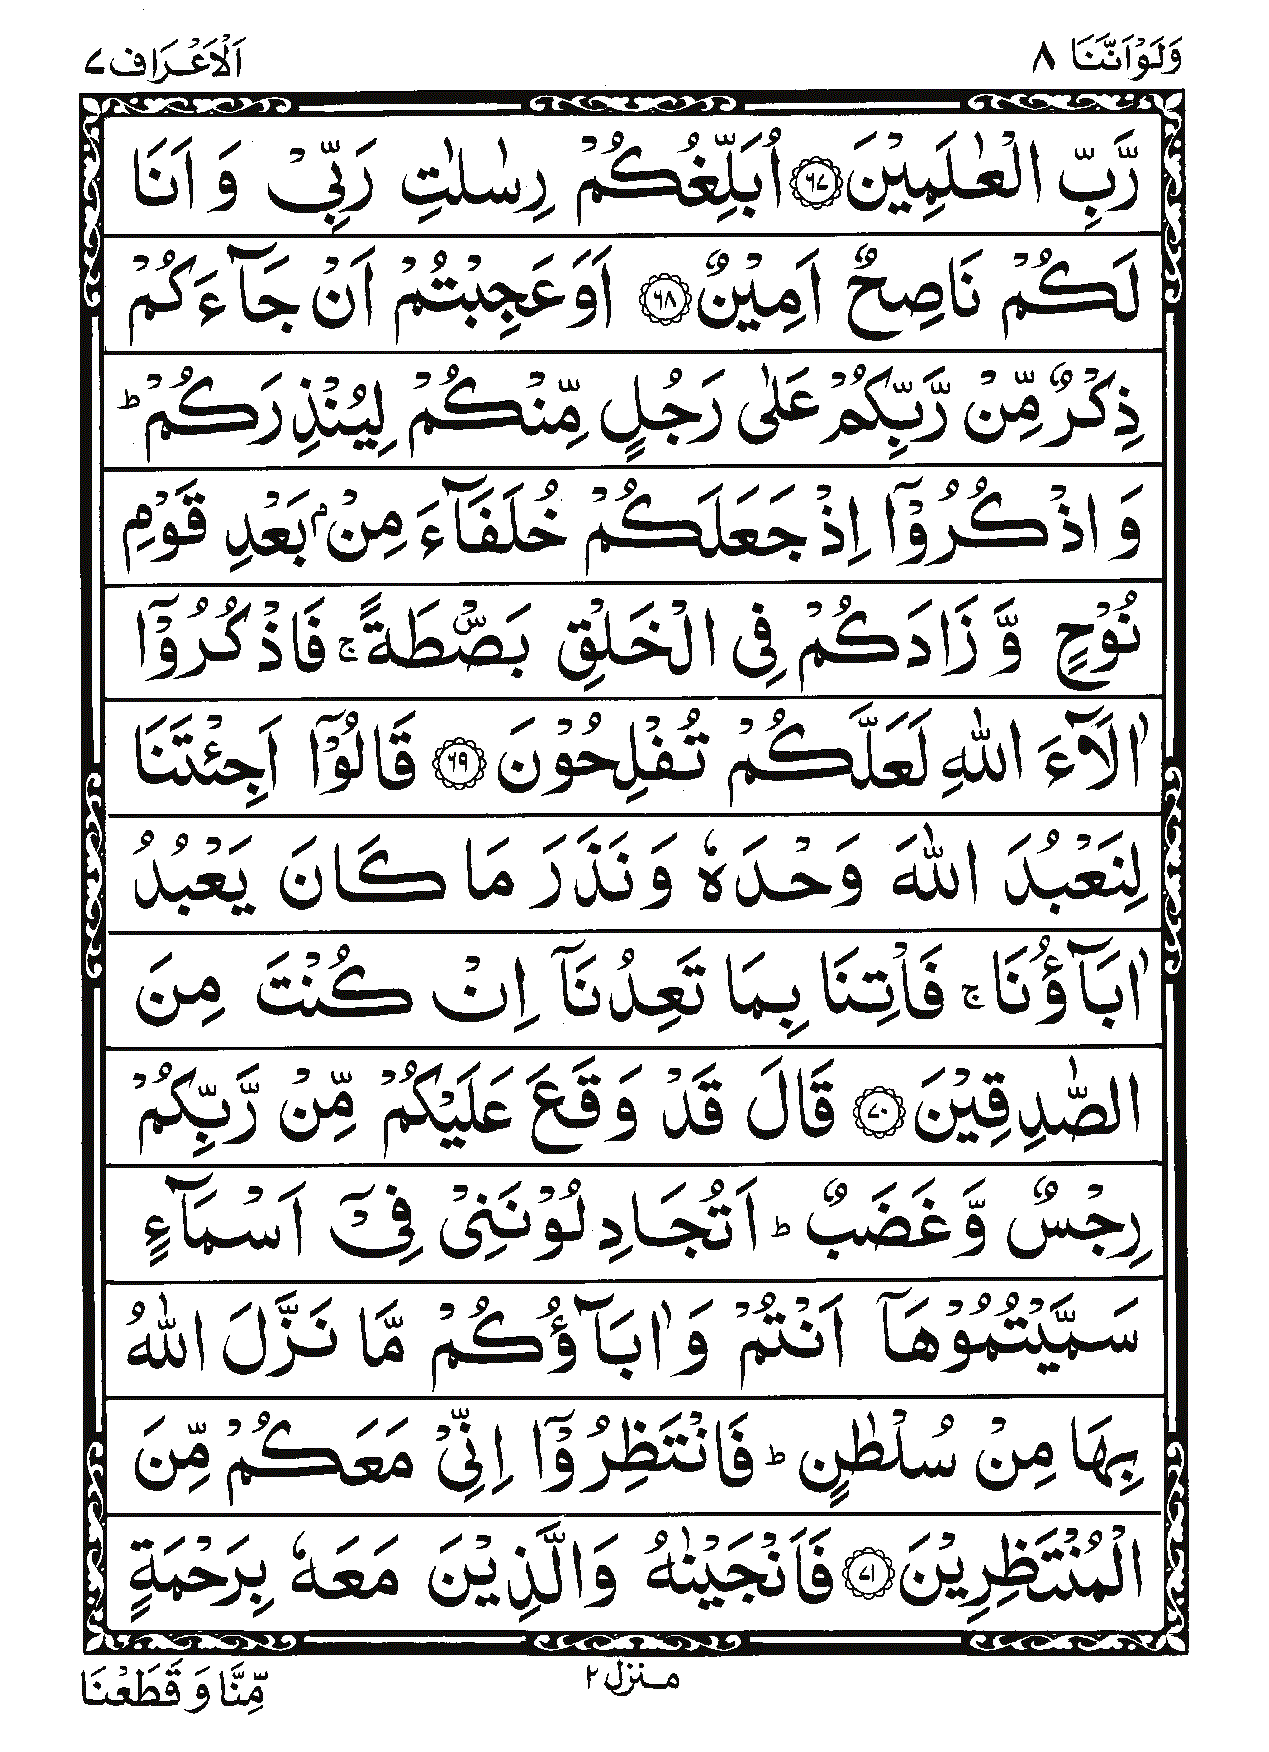 وَلَوْ اَنَّنَا ٨
اَلْاَعْرَاف ٧
رَّبِّ الْعٰلَمِيْنَ ۝٦٧ اُبَلِّغُكُمْ رِسٰلٰتِ رَبِّيْ وَ اَنَا
لَكُمْ نَاصِحٌ اَمِيْنٌ ۝٦٨ اَوَعَجِبْتُمْ اَنْ جَآءَكُمْ
ذِكْرٌ مِّنْ رَّبِّكُمْ عَلٰى رَجُلٍ مِّنْكُمْ لِيُنْذِرَكُمْ ؕ
وَ اذْكُرُوْۤا اِذْ جَعَلَكُمْ خُلَفَآءَ مِنْۢ بَعْدِ قَوْمِ
نُوْحٍ وَّ زَادَكُمْ فِى الْخَلْقِ بَصْۜطَةً ۚ فَاذْكُرُوْۤا
اٰلَآءَ اللّٰهِ لَعَلَّكُمْ تُفْلِحُوْنَ ۝٦٩ قَالُوْۤا اَجِئْتَنَا
لِنَعْبُدَ اللّٰهَ وَحْدَهٗ وَ نَذَرَ مَا كَانَ يَعْبُدُ
اٰبَآؤُنَا ۚ فَاْتِنَا بِمَا تَعِدُنَاۤ اِنْ كُنْتَ مِنَ
الصّٰدِقِيْنَ ۝٧٠ قَالَ قَدْ وَقَعَ عَلَيْكُمْ مِّنْ رَّبِّكُمْ
رِجْسٌ وَّغَضَبٌ ؕ اَتُجَادِلُوْنَنِىْ فِىْۤ اَسْمَآءٍ
سَمَّيْتُمُوْهَاۤ اَنْتُمْ وَ اٰبَآؤُكُمْ مَّا نَزَّلَ اللّٰهُ
بِهَا مِنْ سُلْطٰنٍ ؕ فَانْتَظِرُوْۤا اِنِّىْ مَعَكُمْ مِّنَ
الْمُنْتَظِرِيْنَ ۝٧١ فَاَنْجَيْنٰهُ وَالَّذِيْنَ مَعَهٗ بِرَحْمَةٍ
منزل ٢
مِّنَّا وَ قَطَعْنَا